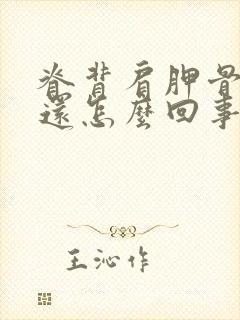 脊背肩胛骨
還怎麼回事
王沁作